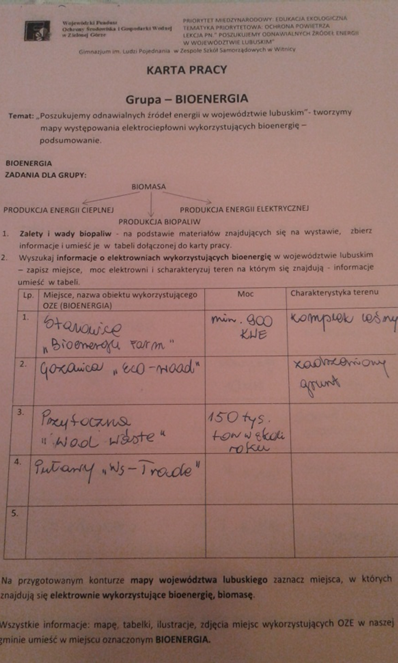 Wojewódzki Fundusz
Ochrony Środowiska i Gospodarki Wodnej
w Zielonej Górze
PRIORYTET MIĘDZYNARODOWY: EDUKACJA EKOLOGICZNA
TEMATYKA PRIORYTETOWA: OCHRONA POWIETRZA
LEKCJA PN." POSZUKUJEMY ODNAWIALNYCH ŹRÓDEŁ ENERGII
W WOJEWÓDZTWIE LUBUSKIM"
Gimnazjum im. Ludzi Pojednania w Zespole Szkół Samorządowych w Witnicy
KARTA PRACY
Grupa – BIOENERGIA
Temat: „Poszukujemy odnawialnych źródeł energii w województwie lubuskim"- tworzymy
mapy występowania elektrociepłowni wykorzystujących bioenergię –
podsumowanie.
BIOENERGIA
ZADANIA DLA GRUPY:
BIOMASA
PRODUKCJA ENERGII CIEPLNEJ
PRODUKCJA ENERGII ELEKTRYCZNEJ
PRODUKCJA BIOPALIW
1. Zalety i wady biopaliw - na podstawie materiałów znajdujących się na wystawie, zbierz
informacje i umieść je w tabeli dołączonej do karty pracy.
2. Wyszukaj informacje o elektrowniach wykorzystujących bioenergię w województwie lubuskim
– zapisz miejsce, moc elektrowni i scharakteryzuj teren na którym się znajdują - informacje
umieść w tabeli.
Lp. Miejsce, nazwa obiektu wykorzystującego OZE (BIOENERGIA) Moc Charakterystyka terenu
1. Stanowice „Bioenergii Farm" min. 800 KWE kompleks leśny
2. Gozdnica „Eco-Wood" zadrzewiony grunt
3. Przytoczna „Wood Waste" 150 tys. ton w roku
4. Puławy „Ws-Trade"
5.
Na przygotowanym konturze mapy województwa lubuskiego zaznacz miejsca, w których
znajdują się elektrownie wykorzystujące bioenergię, biomasę.
Wszystkie informacje: mapę, tabelki, ilustracje, zdjęcia miejsc wykorzystujących OZE w naszej
gminie umieść w miejscu oznaczonym BIOENERGIA.